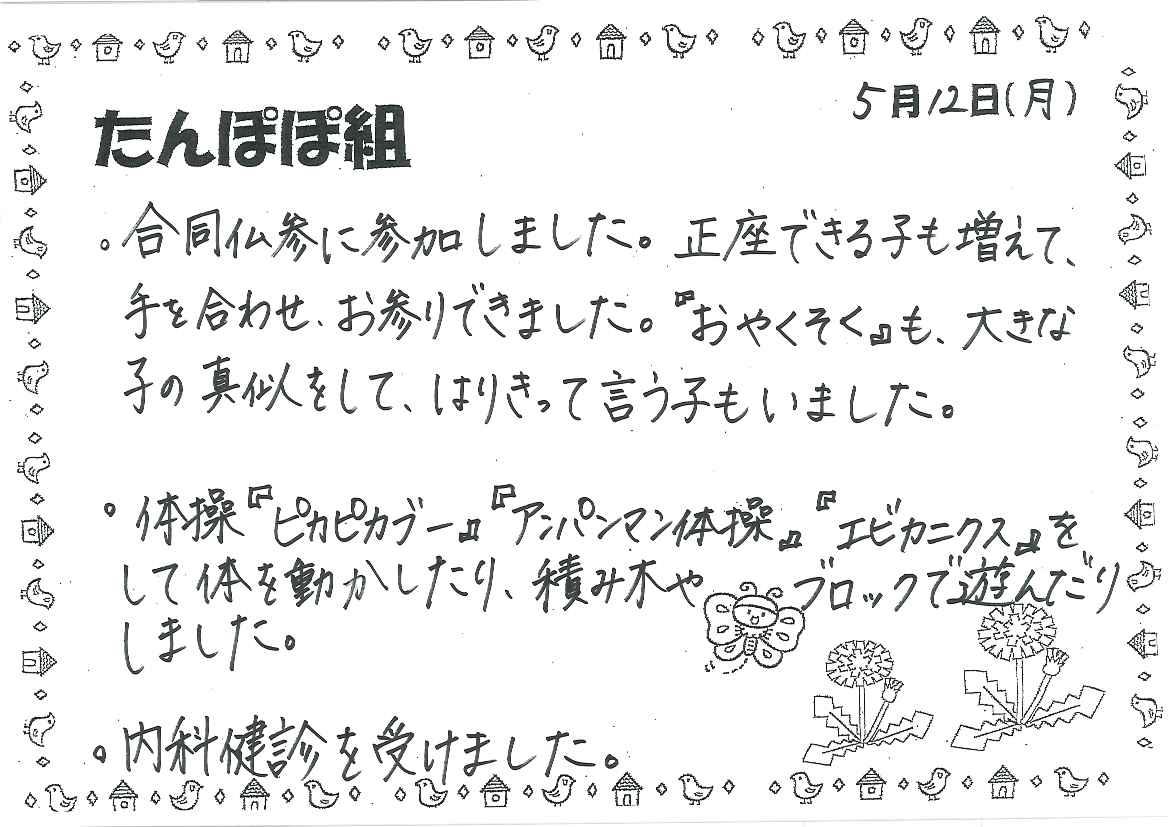 5月12日(月)
たんぽぽ組
。合同仏参に参加しました。正座できる子も増えて、
手を合わせ、お参りできました。『おやくそく』も、大きな
子の真似をして、はりきって言う子もいました。
。体操『ピカピカブー』『アンパンマン体操』『エビカニクス』を
して体を動かしたり、積み木や ブロックで遊んだり
しました。
。内科健診を受けました。